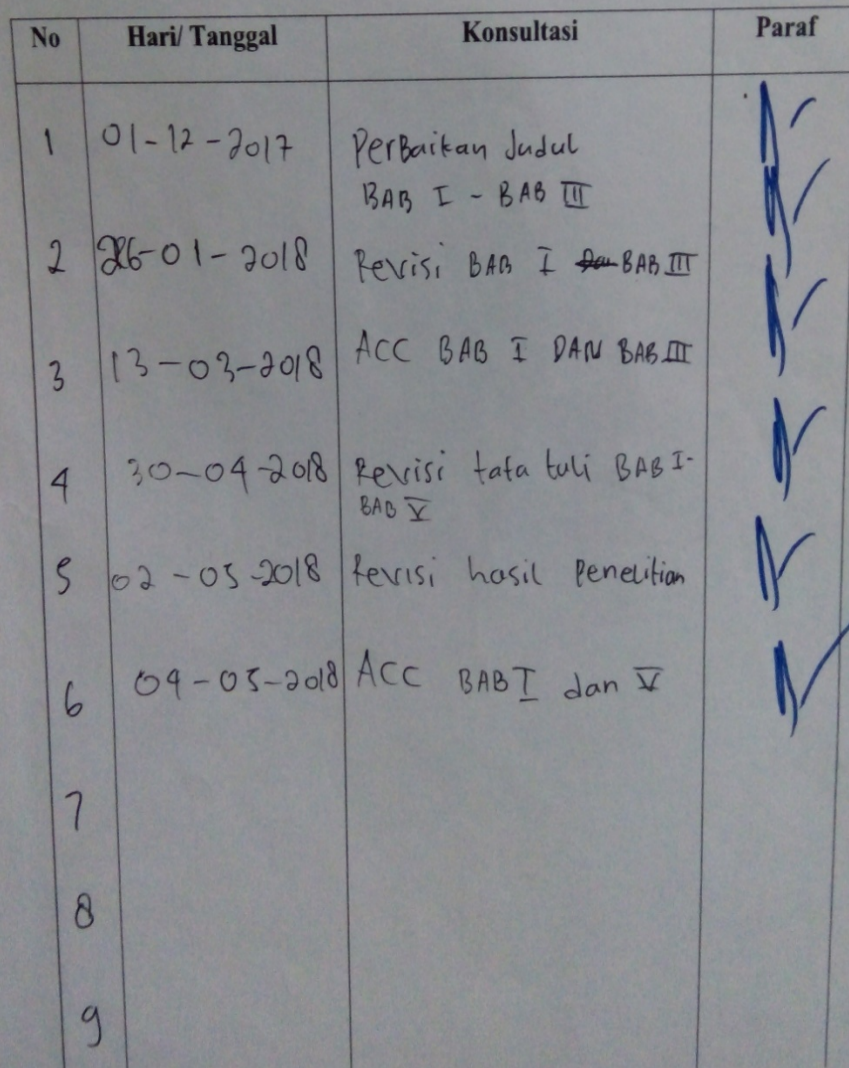 No Hari/ Tanggal Konsultasi Paraf
1 01-12-2017 PerBaikan Judul
BAB I - BAB III
2 26-01-2018 Revisi BAB I BAB III
3 13-03-2018 ACC BAB I DAN BAB III
4 30-04-2018 Revisi tata tuli BAB I-
BAB V
5 02-05-2018 Revisi hasil Penelitian
6 04-05-2018 ACC BAB I dan V
7
8
9